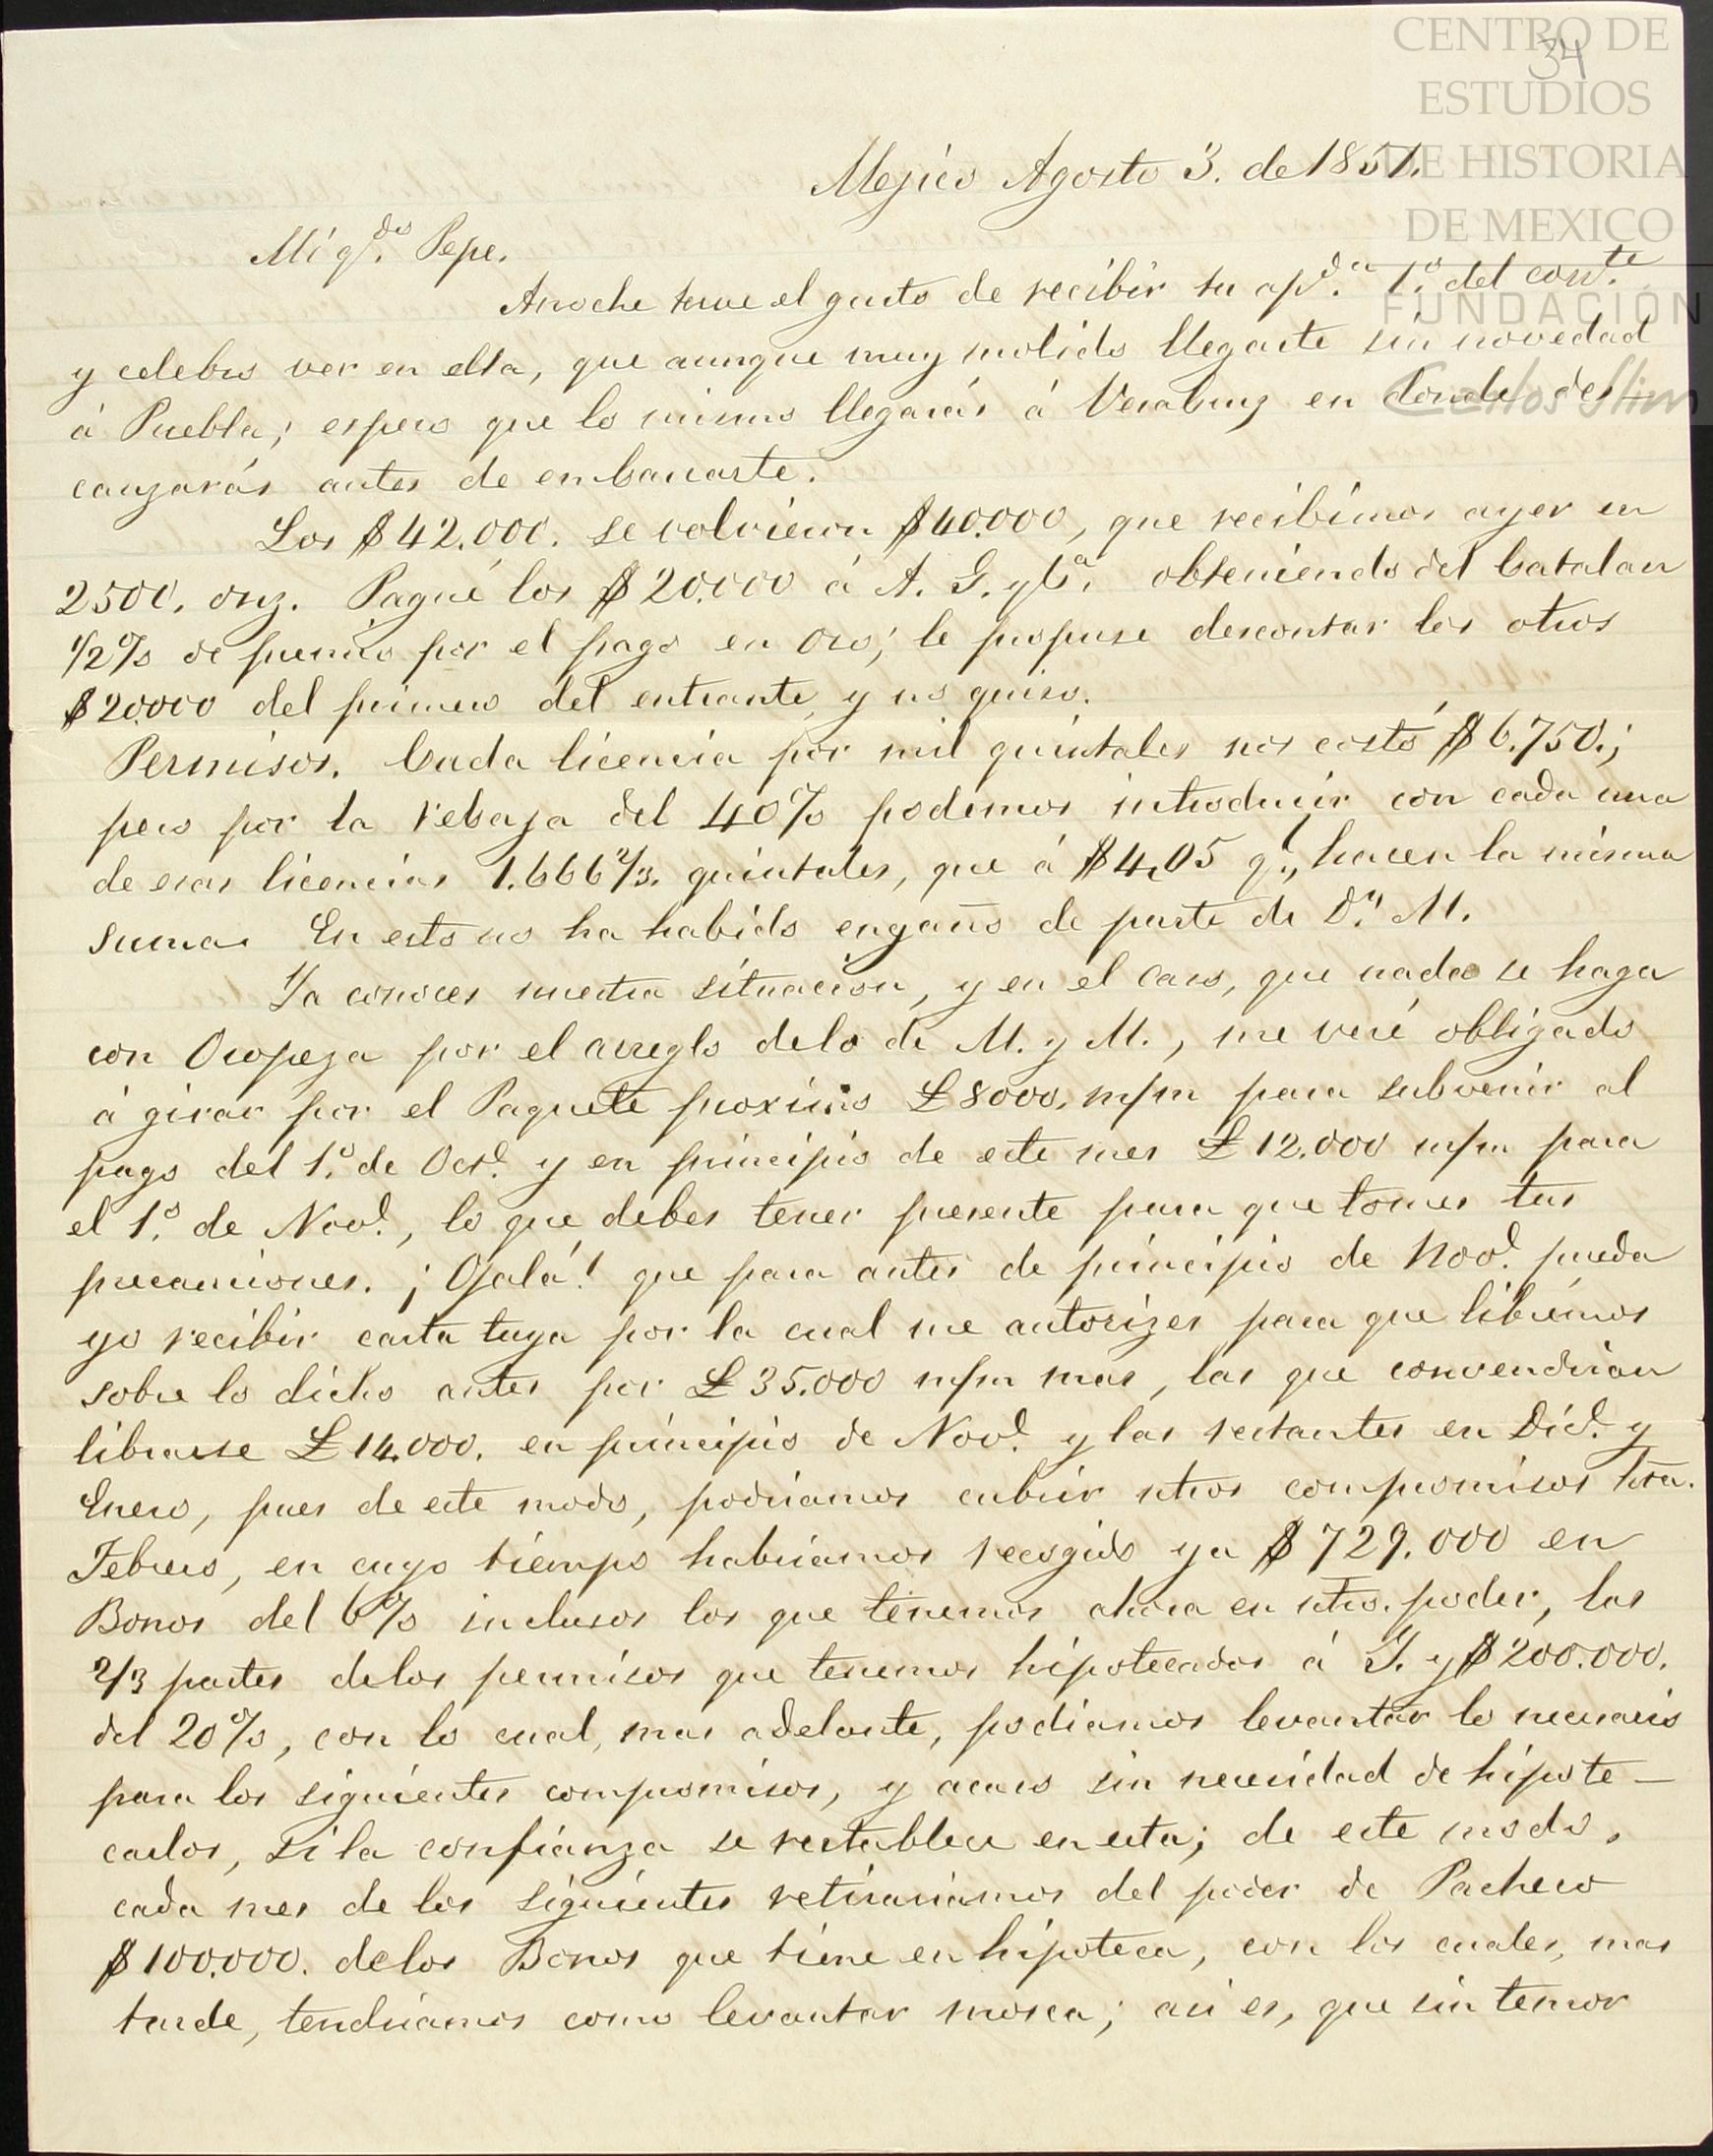 CENTRO DE
ESTUDIOS
DE HISTORIA
DE MEXICO
FUNDACIÓN
Carlos Slim
34
Mejico Agosto 3. de 1857.
Mi qdo. Pepe.
Anoche tuve el gusto de recibir tu apda. 1º. del corrte.
y celebro ver en ella, que aunque muy molido llegaste sin novedad
á Puebla; espero que lo mismo llegarás á Veracruz en donde des-
canzarás antes de embarcarte.
Los $42.000. se volvieron $40.000, que recibimos ayer en
2500. onz. Pagué los $20.000 á A. G. y Ca. obteniendo del Catalan
1/2% de premio por el pago en oro; le propuse descontar los otros
$20.000 del primero del entrante, y no quiso.
Permisos. Cada licencia por mil quintales nos costó $6.750.;
pero por la rebaja del 40% podemos introducir con cada una
de esas licencias 1.666 2/3. quintales, que á $4,05 ql., hacen la misma
suma. En esto no ha habido engaño de parte de Dn. M.
Ya conoces nuestra situación, y en el caso, que nada se haga
con Oropeza por el arreglo delo de M. y M., me veré obligado
á girar por el Paquete proximo £8000. m/m para subvenir al
pago del 1º. de Oct. y en principio de este mes £12.000 m/m para
el 1º. de Nov., lo que debes tener presente para que tomes tus
precauciones. ¡Ojalá! que para antes de principio de Nov. pueda
yo recibir carta tuya por la cual me autorizes para que librémos
sobre lo dicho antes por £35.000 m/m mas, las que convendrían
librarse £14.000. en principio de Nov. y las restantes en Dic. y
Enero, pues de este modo, podriamos cubrir ntros compromisos hta.
Febrero, en cuyo tiempo habriamos recogido ya $729.000 en
Bonos del 6% inclusos los que tenemos ahora en ntro. poder, las
2/3 partes delos permisos que tenemos hipotecados á Y. y $200.000.
del 20%, con lo cual, mas adelante, podiamos levantar lo necesario
para los siguientes compromisos, y acaso sin necesidad de hipote-
carlos, si la confianza se restablece en esta; de este modo,
cada mes de los siguientes retirariamos del poder de Pacheco
$100.000. delos Bonos que tiene en hipoteca, con los cuales, mas
tarde, tendriamos como levantar mosca; asi es, que sin temor